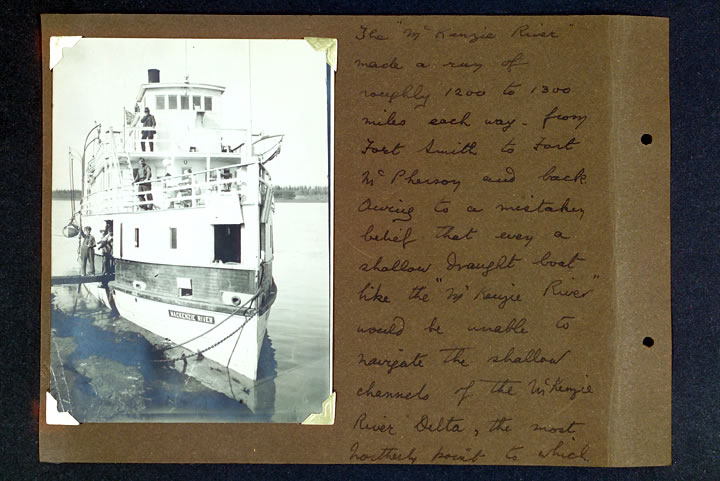 MACKENZIE RIVER
The "McKenzie River"
made a run of
roughly 1200 to 1300
miles each way - from
Fort Smith to Fort
McPherson and back
Owing to a mistaken
belief that even a
shallow draught boat
like the "McKenzie River"
would be unable to
navigate the shallow
channels of the McKenzie
River Delta, the most
Northerly point to which